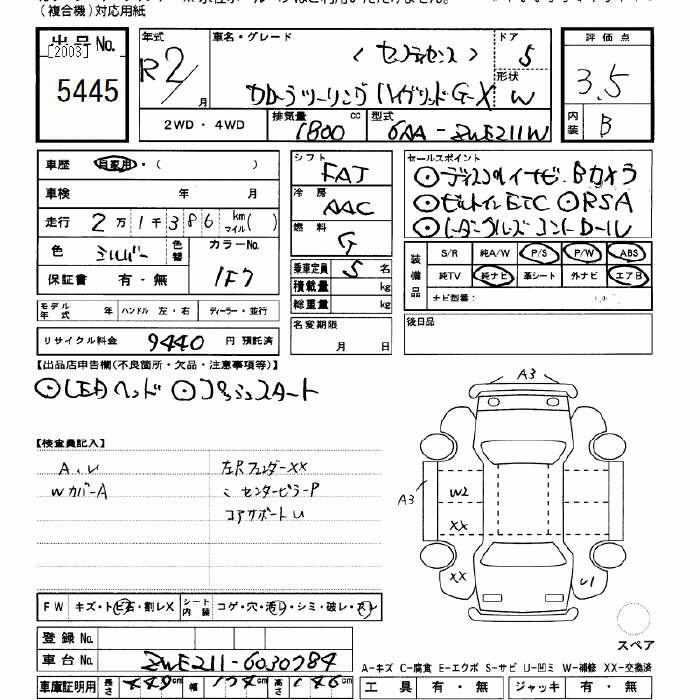 (複合機)対応用紙
出品No.
[2003]
5445
年式
R2/
月
車名・グレード
(セーフティセンス)
カローラツーリング ハイブリッドG-X
ドア
5
形状
W
2WD・4WD
排気量
1800
cc
型式
6AA-ZWE211W
評価点
3.5
内装
B
車歴
自家用・( )
車検
年 月
走行
2万1千386
km
マイル( )
色
シルバー
色替
カラーNo.
1F7
保証書
有・無
モデル年式
年
ハンドル 左・右
ディーラー・並行
リサイクル料金
9440
円 預託済
シフト
FAT
冷房
AAC
燃料
G
乗車定員
5
名
積載量
kg
総重量
kg
名変期限
月 日
セールスポイント
⊙ディスプレイナビ・Bカメラ
⊙ビルトインETC ⊙RSA
⊙レーダークルーズコントロール
装備品
S/R 純A/W P/S P/W ABS
純TV 純ナビ 革シート 外ナビ エアB
ナビ型番:
後日品
【出品店申告欄(不良箇所・欠品・注意事項等)】
⊙LEDヘッド ⊙プッシュスタート
【検査員記入】
A.U
WカバーA
左Rフェンダー XX
〃センターピラーP
コアサポートU
A3
A3
W2
XX
XX
U1
スペア
FW
キズ・トビ石・割レX
シート内装
コゲ・穴・汚レ・シミ・破レ・スレ
登録No.
車台No.
ZWE211-6030784
車庫証明用
長さ
449cm
幅
174cm
高さ
146cm
A-キズ C-腐食 E-エクボ S-サビ U-凹ミ W-補修 XX-交換済
工具 有・無
ジャッキ 有・無